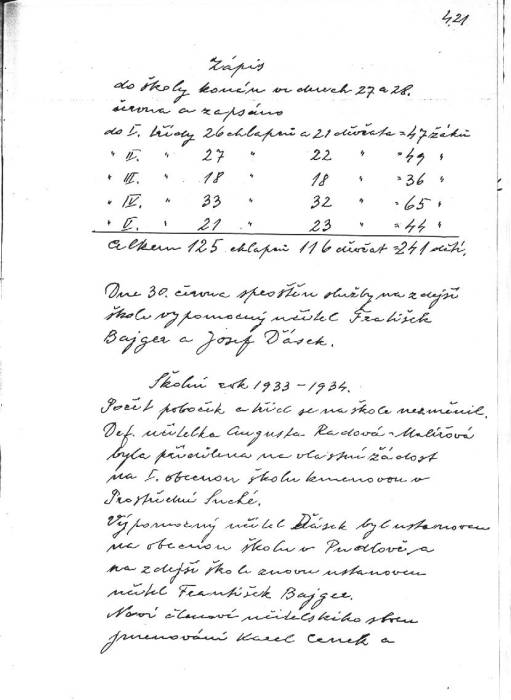 421
Zápis
do školy konán ve dnech 27 a 28.
června a zapsáno
do I. třídy 26 chlapců a 21 děvčata = 47 žáků
" II. " 27 " 22 " = 49 "
" III. " 18 " 18 " = 36 "
" IV. " 33 " 32 " = 65 "
" V. " 21 " 23 " = 44 "
Celkem 125 chlapců 116 děvčat = 241 dětí.
Dne 30. června sproštěn služby na zdejší
škole výpomocný učitel František
Bajger a Josef Ďásek.
Školní rok 1933-1934.
Počet poboček a tříd se na škole nezměnil.
Def. učitelka Augusta Radová-Malířová
byla přidělena na vlastní žádost
na I. obecnou školu kmenovou v
Prostřední Suché.
Výpomocný učitel Ďásek byl ustanoven
na obecnou školu v Pudlově, a
na zdejší škole znovu ustanoven
učitel František Bajger.
Noví členové učitelského sboru
jmenováni Karel Cenek a